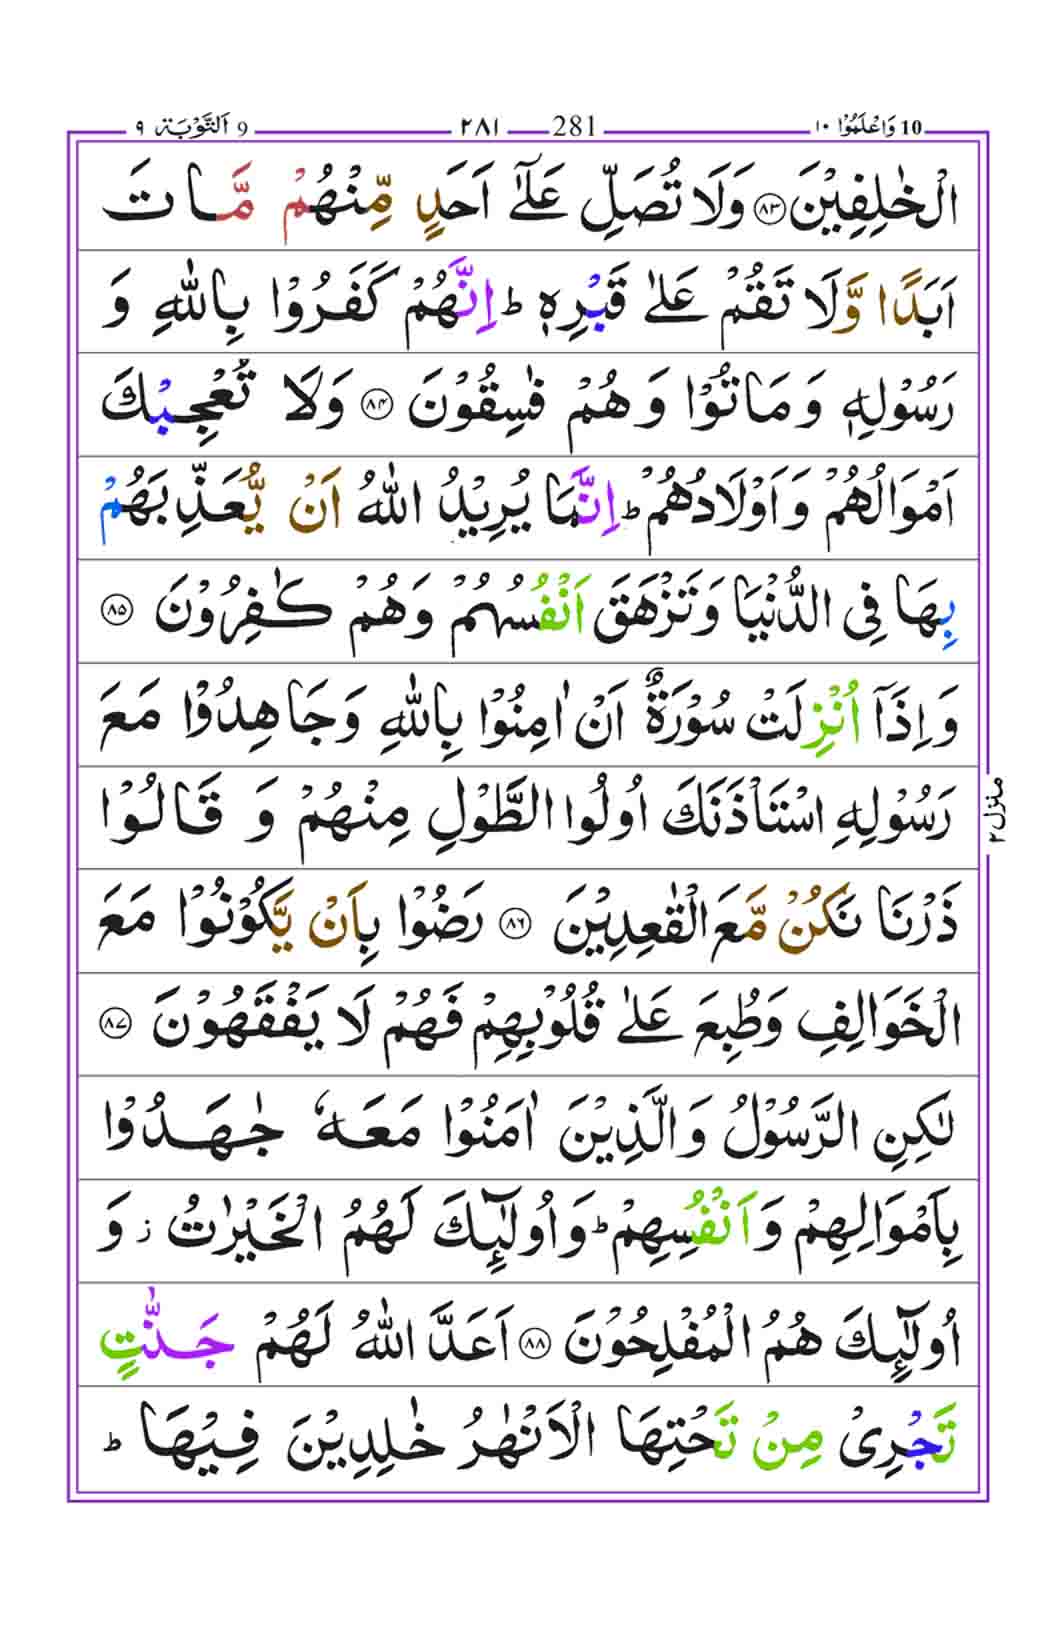 10 وَاعْلَمُوْۤا ١٠ 281 ٢٨١ 9 اَلتَّوْبَة ٩
الْخٰلِفِيْنَ ﴿٨٣﴾ وَلَا تُصَلِّ عَلٰۤى اَحَدٍ مِّنْهُمْ مَّاتَ
اَبَدًا وَّلَا تَقُمْ عَلٰى قَبْرِهٖ ؕ اِنَّهُمْ كَفَرُوْا بِاللّٰهِ وَ
رَسُوْلِهٖ وَمَاتُوْا وَهُمْ فٰسِقُوْنَ ﴿٨٤﴾ وَلَا تُعْجِبْكَ
اَمْوَالُهُمْ وَاَوْلَادُهُمْ ؕ اِنَّمَا يُرِيْدُ اللّٰهُ اَنْ يُّعَذِّبَهُمْ
بِهَا فِى الدُّنْيَا وَتَزْهَقَ اَنْفُسُهُمْ وَهُمْ كٰفِرُوْنَ ﴿٨٥﴾
وَاِذَاۤ اُنْزِلَتْ سُوْرَةٌ اَنْ اٰمِنُوْا بِاللّٰهِ وَجَاهِدُوْا مَعَ
رَسُوْلِهِ اسْتَاْذَنَكَ اُولُوا الطَّوْلِ مِنْهُمْ وَ قَالُوْا
ذَرْنَا نَكُنْ مَّعَ الْقٰعِدِيْنَ ﴿٨٦﴾ رَضُوْا بِاَنْ يَّكُوْنُوْا مَعَ
الْخَوَالِفِ وَطُبِعَ عَلٰى قُلُوْبِهِمْ فَهُمْ لَا يَفْقَهُوْنَ ﴿٨٧﴾
لٰكِنِ الرَّسُوْلُ وَالَّذِيْنَ اٰمَنُوْا مَعَهٗ جٰهَدُوْا
بِاَمْوَالِهِمْ وَاَنْفُسِهِمْ ؕ وَاُولٰٓئِكَ لَهُمُ الْخَيْرٰتُ ز وَ
اُولٰٓئِكَ هُمُ الْمُفْلِحُوْنَ ﴿٨٨﴾ اَعَدَّ اللّٰهُ لَهُمْ جَنّٰتٍ
تَجْرِىْ مِنْ تَحْتِهَا الْاَنْهٰرُ خٰلِدِيْنَ فِيْهَا ؕ
منزل ٢